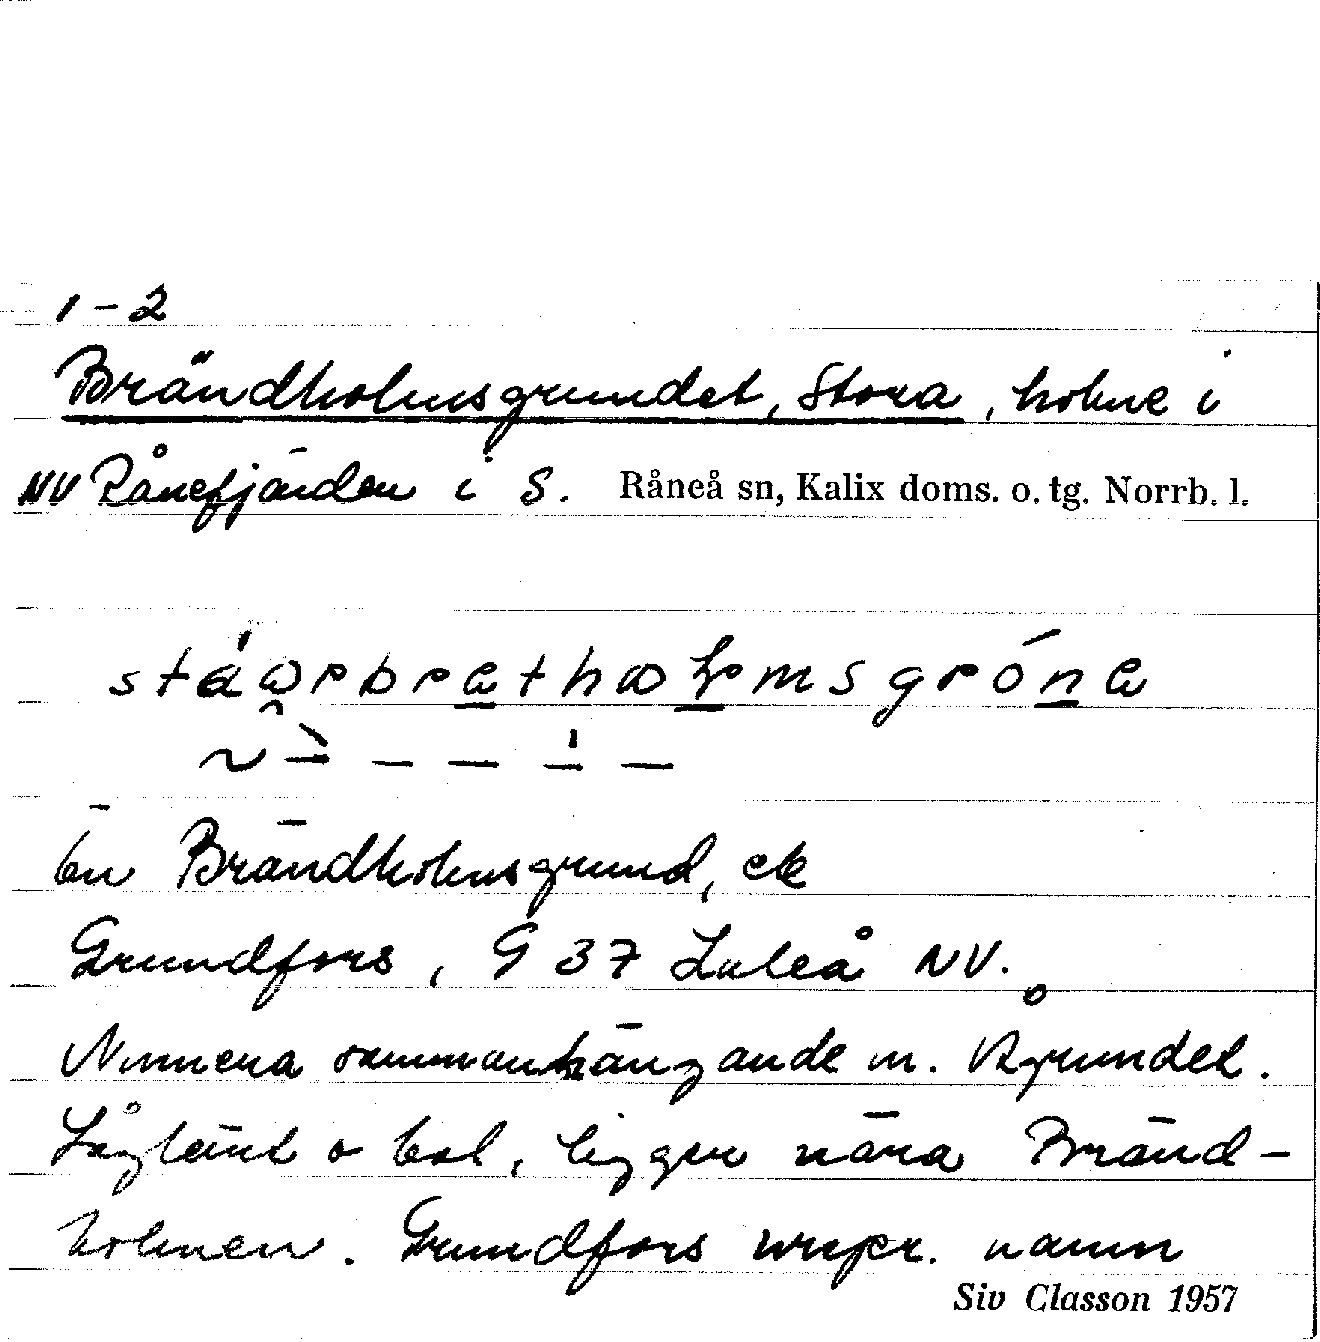 1-2
Brändholmsgrundet, Stora, holme i
NV Rånefjärden i S. Råneå sn, Kalix doms. o. tg. Norrb. l.
bn Brändholmsgrund, ek
Grundfors, G 37 Luleå NV.
Numera sammanhängande m. Rågrundet.
Låglänt o kal, ligger nära Bränd-
holmen. Grundfors urspr. namn
Siv Classon 1957